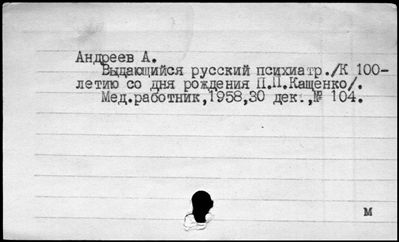 Андреев А.
Выдающийся русский психиатр./К 100-
летию со дня рождения П.П.Кащенко/.
Мед.работник,1958,30 дек.,№ 104.
м